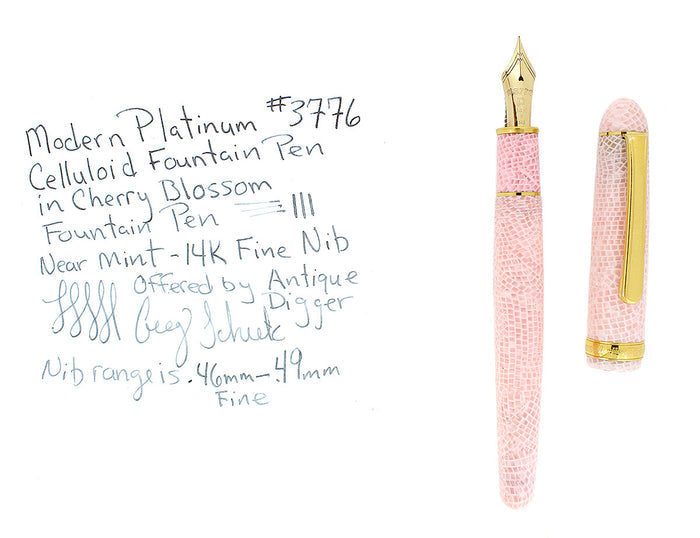 Modern Platinum #3776
Celluloid Fountain Pen
in Cherry Blossom
Fountain Pen
Near Mint - 14K Fine Nib
Offered by Antique
Digger
Nib range is .46mm - .49mm
Fine